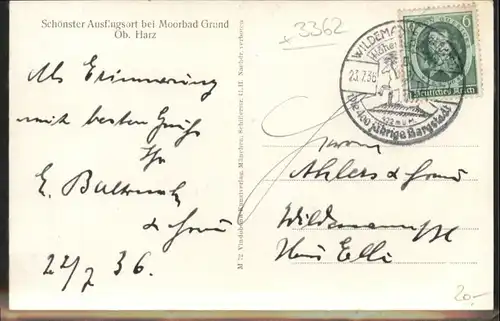 Schönster Ausflugsort bei Moorbad Grund
Ob. Harz
Als Erinnerung
mit besten Gruß
Ihr
E.
& Frau
22/7 36.
M 72 Vindobona Kunstverlag, München, Schillerstr.
+3362
WILDEMA
23.7.36
422 m ü. M.
Die 400 jährige Bergstadt
6
Deutsches Reich
Herrn
Ahlers & Frau
Wildemann
Haus Elli
20.-